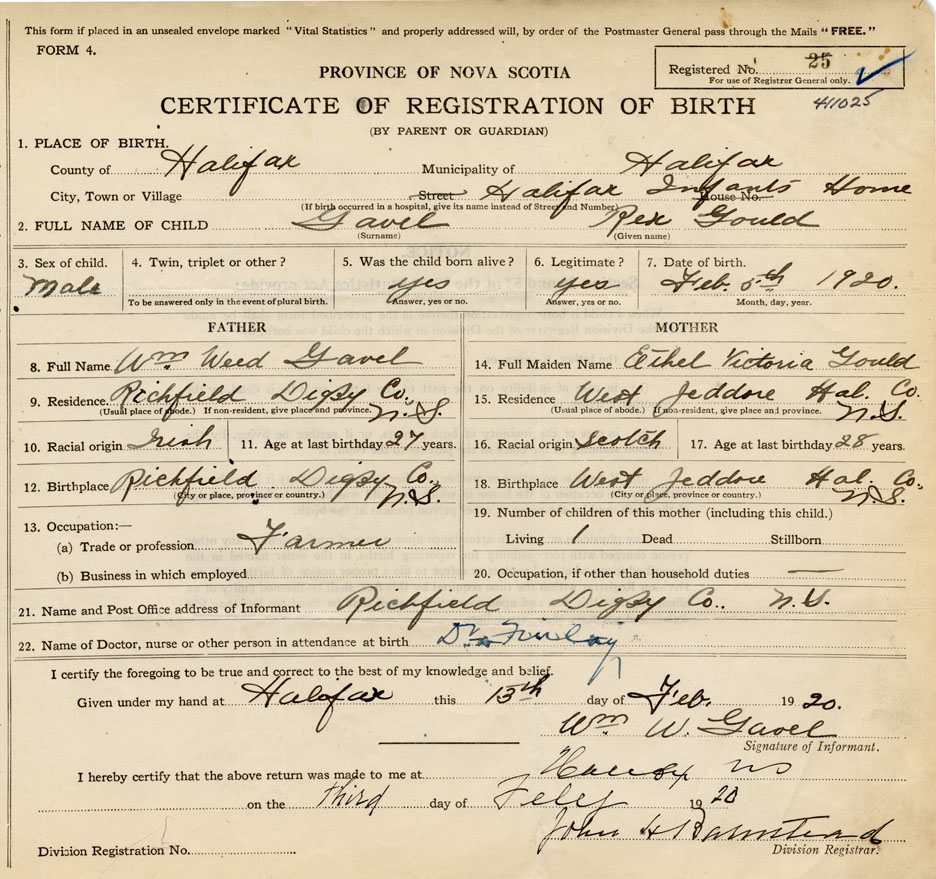 This form if placed in an unsealed envelope marked "Vital Statistics" and properly addressed will, by order of the Postmaster General pass through the Mails "FREE."
FORM 4.
Registered No. 25
For use of Registrar General only.
PROVINCE OF NOVA SCOTIA
411025
CERTIFICATE OF REGISTRATION OF BIRTH
(BY PARENT OR GUARDIAN)
1. PLACE OF BIRTH.
County of Halifax Municipality of Halifax
City, Town or Village Street Halifax Infants Home House No.
(If birth occurred in a hospital, give its name instead of Street and Number)
2. FULL NAME OF CHILD Gavel Rex Gould
(Surname) (Given name)
3. Sex of child. 4. Twin, triplet or other? 5. Was the child born alive? 6. Legitimate? 7. Date of birth.
Male yes yes Feb. 5th 1920.
To be answered only in the event of plural birth. Answer, yes or no. Answer, yes or no. Month, day, year.
FATHER MOTHER
8. Full Name Wm Weed Gavel 14. Full Maiden Name Ethel Victoria Gould
9. Residence Richfield Digby Co. N.S. 15. Residence West Jeddore Hal. Co. N.S.
(Usual place of abode.) If non-resident, give place and province. (Usual place of abode.) If non-resident, give place and province.
10. Racial origin Irish 11. Age at last birthday 27 years. 16. Racial origin Scotch 17. Age at last birthday 28 years.
12. Birthplace Richfield Digby Co. N.S. 18. Birthplace West Jeddore Hal. Co. N.S.
(City or place, province or country.) (City or place, province or country.)
13. Occupation:— 19. Number of children of this mother (including this child.)
(a) Trade or profession Farmer Living 1 Dead Stillborn
(b) Business in which employed 20. Occupation, if other than household duties —
21. Name and Post Office address of Informant Richfield Digby Co. N.S.
22. Name of Doctor, nurse or other person in attendance at birth Dr. Finlay
I certify the foregoing to be true and correct to the best of my knowledge and belief.
Given under my hand at Halifax this 13th day of Feb. 1920.
Wm W. Gavel
Signature of Informant.
I hereby certify that the above return was made to me at Halifax NS
on the third day of Feby 1920
John H Barnstead
Division Registration No. Division Registrar.